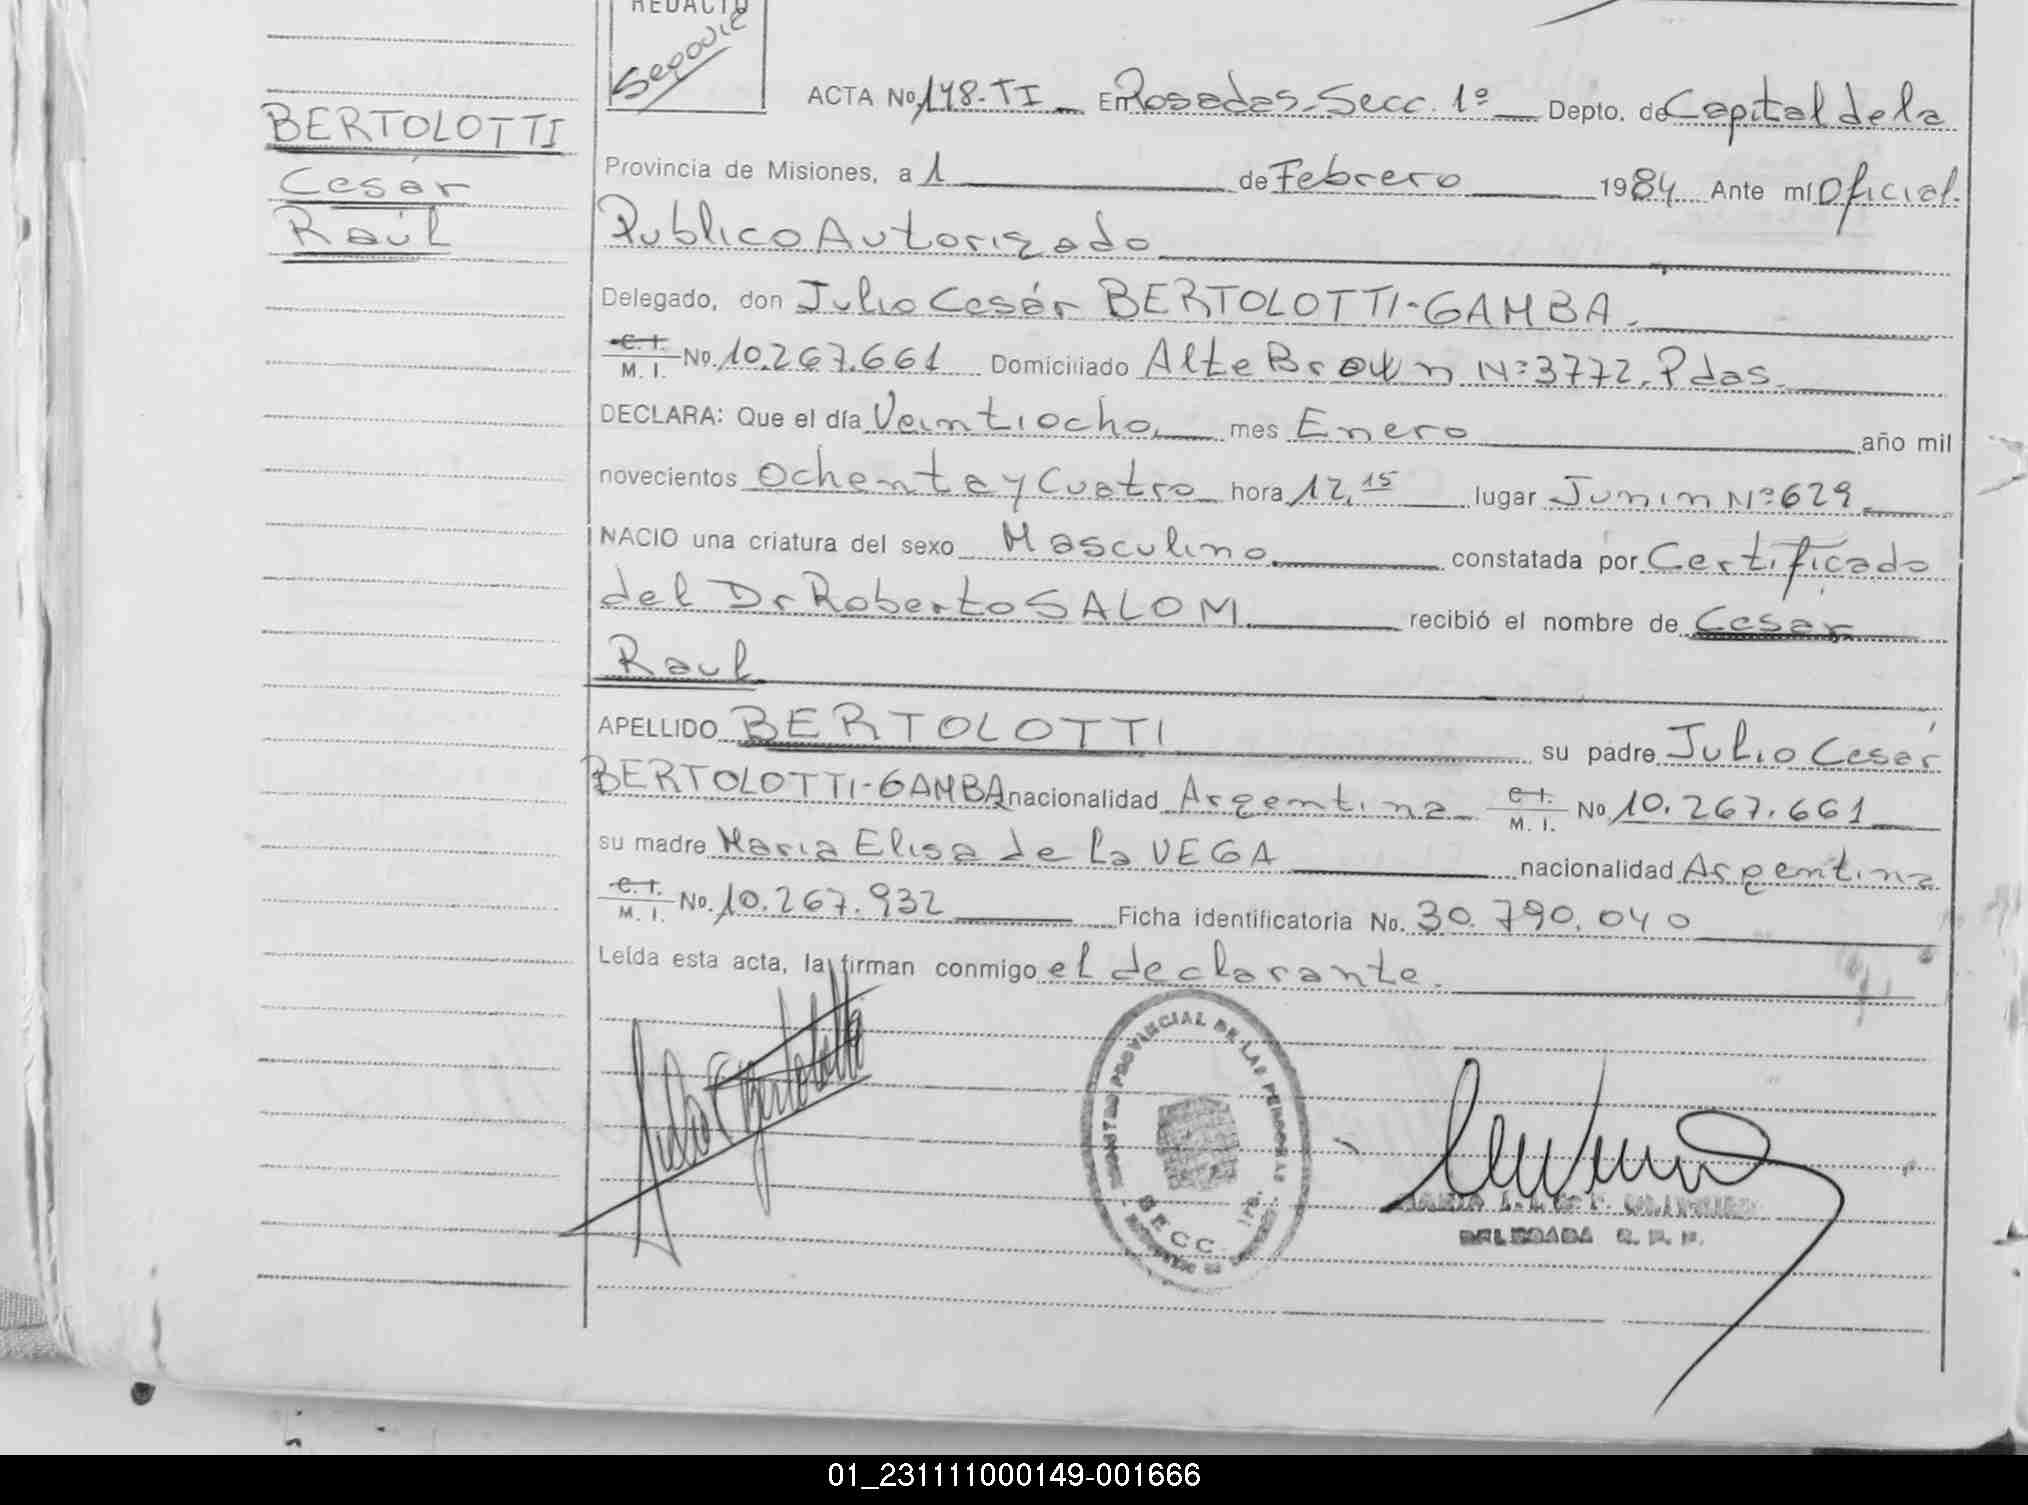 REDACTO
BERTOLOTTI
Cesár
Raúl
ACTA No. 148-TI En Posadas-Secc. 1º Depto. de Capital de la
Provincia de Misiones, a 1 de Febrero 1984 Ante mí Oficial
Publico Autorizado
Delegado, don Julio Cesár BERTOLOTTI-GAMBA.
C. I. M. I. No. 10.267.661 Domiciliado Alte Brown Nº 3772. Pdas.
DECLARA: Que el día Veintiocho mes Enero año mil
novecientos Ochenta y Cuatro hora 12,15 lugar Junin Nº 629
NACIO una criatura del sexo Masculino constatada por Certificado
del Dr Roberto SALOM recibió el nombre de Cesar
Raul
APELLIDO BERTOLOTTI su padre Julio Cesár
BERTOLOTTI-GAMBA nacionalidad Argentina C. I. M. I. No. 10.267.661
su madre Maria Elisa de la VEGA nacionalidad Argentina
C. I. M. I. No. 10.267.932 Ficha identificatoria No. 30.790.040
Leída esta acta, la firman conmigo el declarante.
Julio C Bertolotti
PROVINCIAL DE LAS PERSONAS
SECC. 1ra.
DELEGADA R. P. P.
01_231111000149-001666